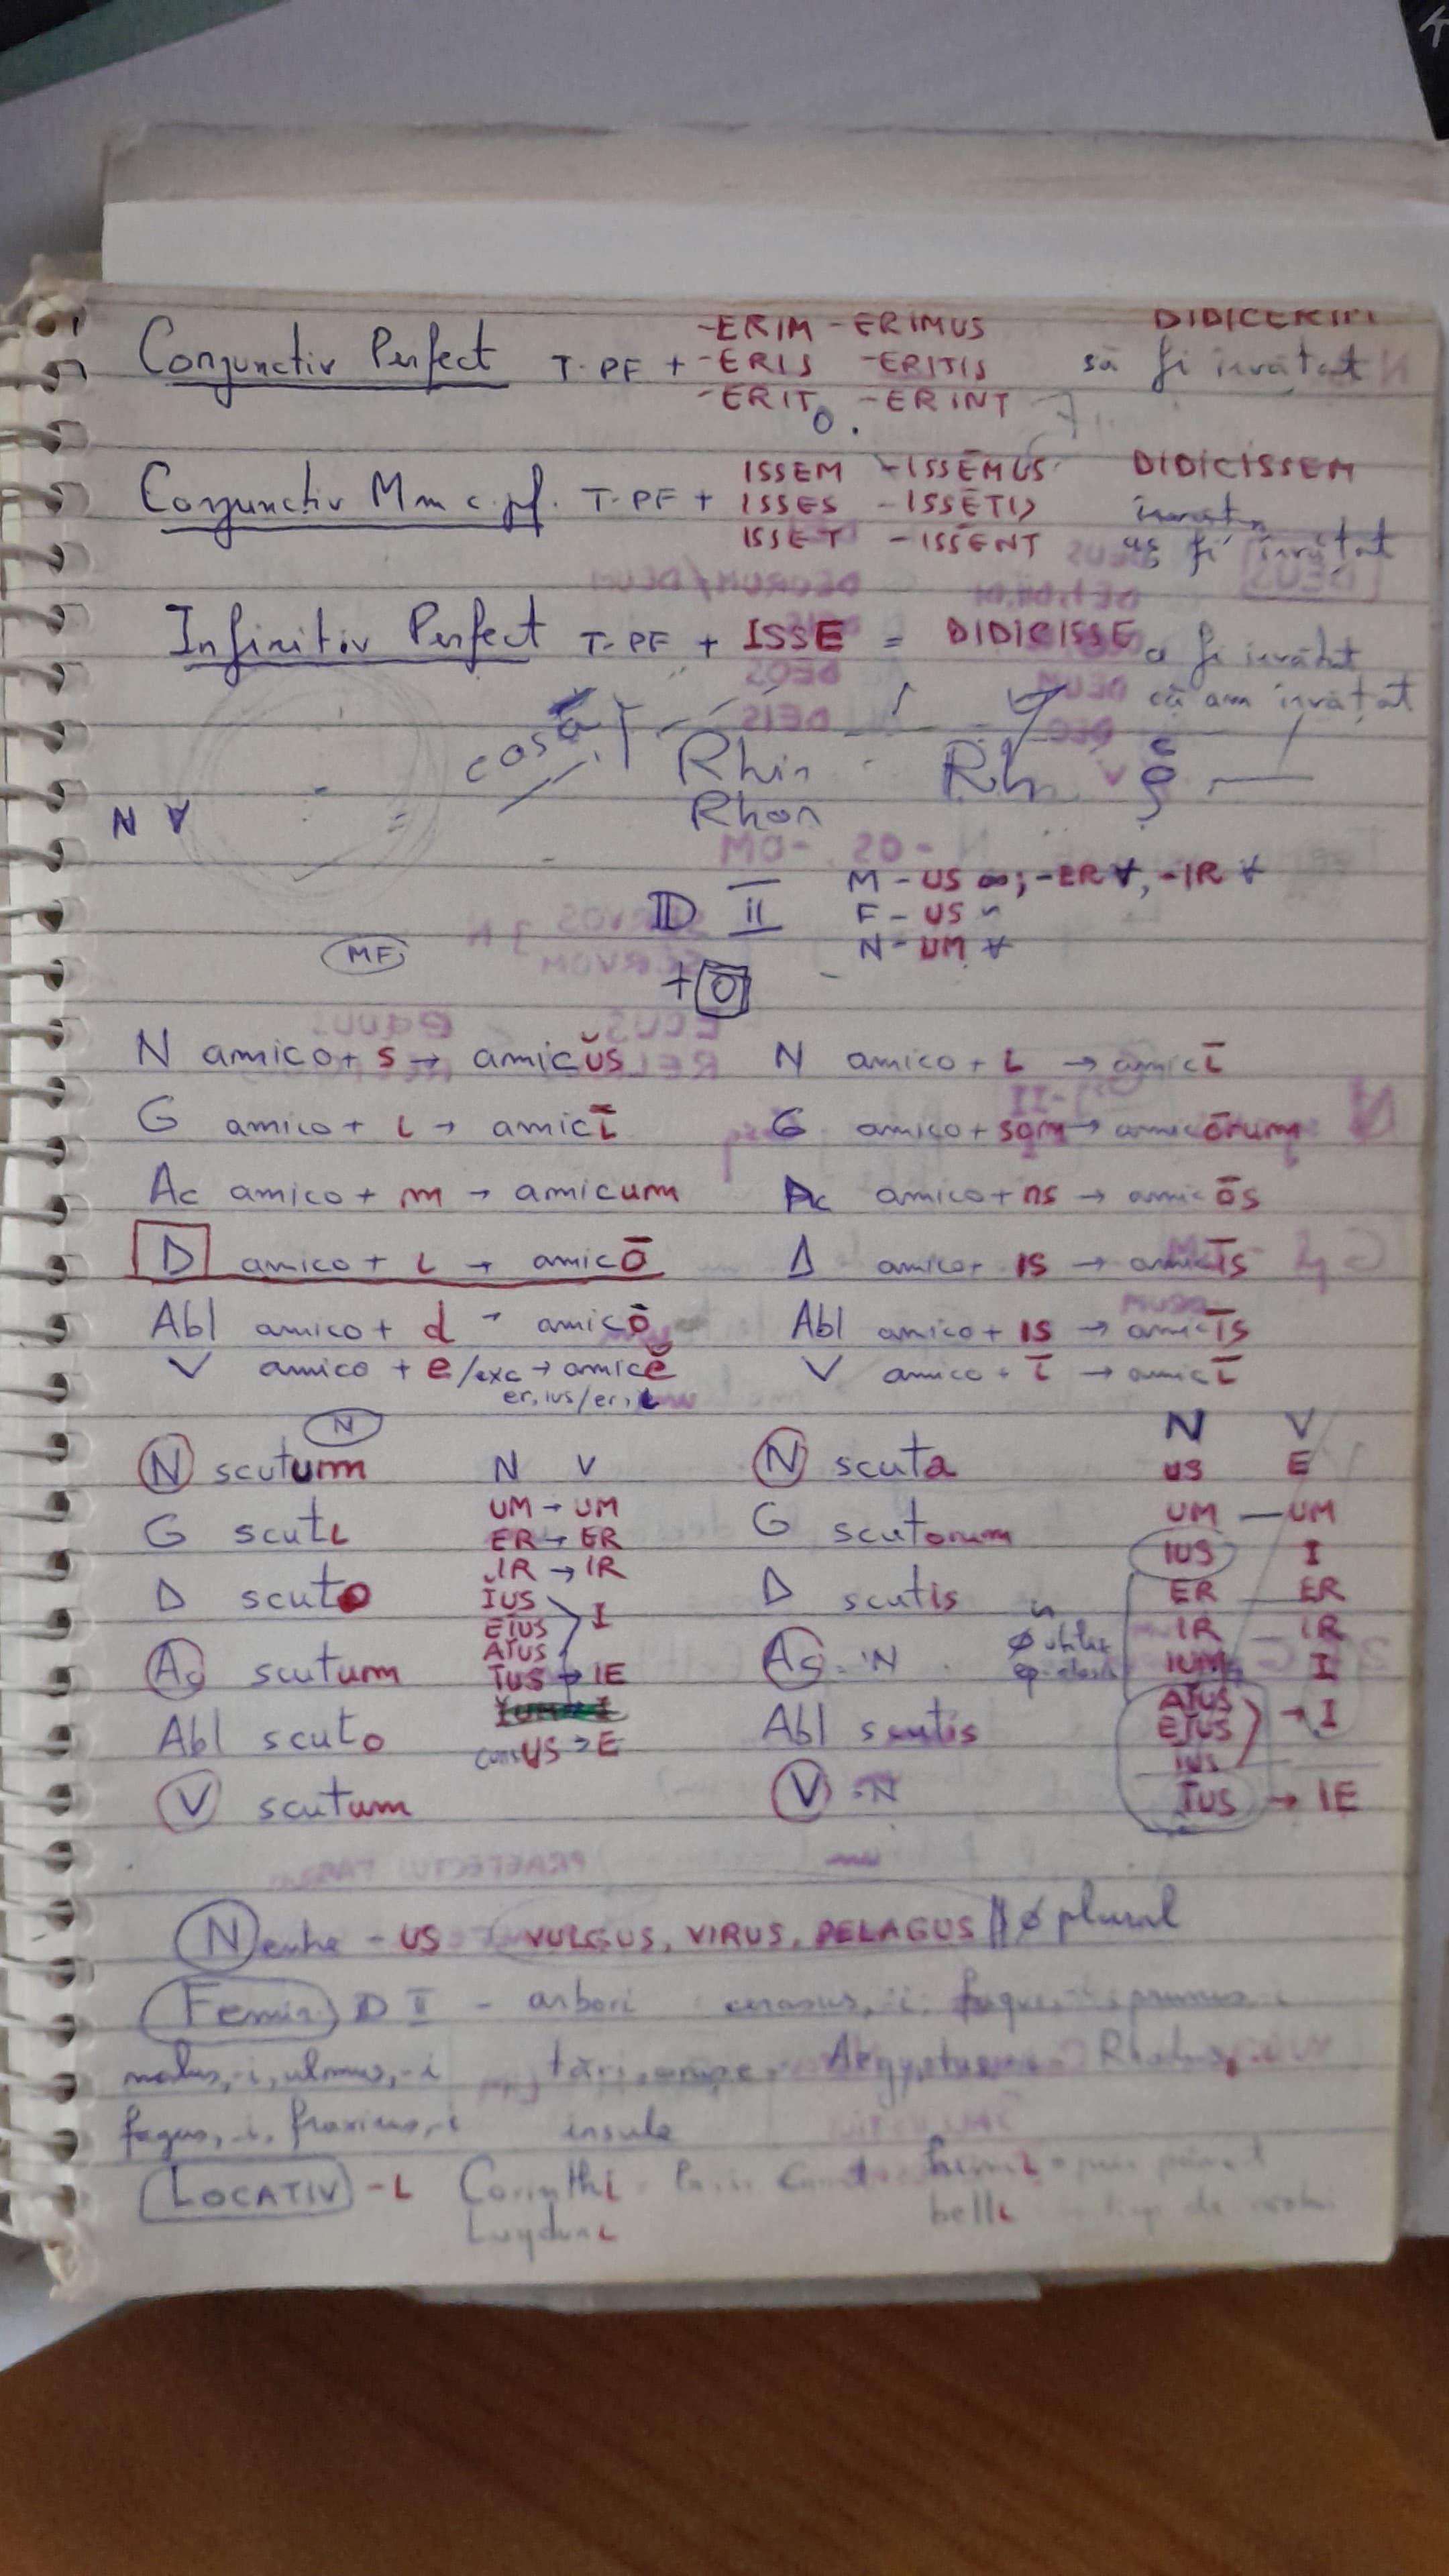 -ERIM -ERIMUS DIDICERIM
Conjunctiv Perfect T.PF + -ERIS -ERITIS să fi învătat
-ERIT -ERINT
ISSEM -ISSĒMUS DIDICISSEM
Conjunctiv Mm c. pf. T.PF + ISSES -ISSĒTIS
ISSET -ISSENT aș fi învătat
Infinitiv Perfect T.PF + ISSE = DIDICISSE a fi învătat
că am învățat
casă Rhin Rh
Rhon
N ∀
M - US ∞; -ER ∀, -IR ∀
D II F - US
N - UM ∀
MF
+ ō
N amico + s → amicŭs N amico + i → amicī
G amico + i → amicī G amico + som → amicōrum
Ac amico + m → amicum Ac amico + ns → amicōs
D amico + i → amicō D amico + IS → amicīs
Abl amico + d → amicō Abl amico + IS → amicīs
V amico + e/exc → amicĕ V amico + ī → amicī
er, ius/er, i
N N V
N scutum N V N scuta US E
UM → UM UM — UM
G scuti ER → ER G scutorum IUS I
IR → IR ER ER
D scuto IUS D scutis IR — IR
EIUS I
AIUS
Ac scutum IUS → IE Ac = N IUM I
AIUS
Abl scuto US → E Abl scutis EIUS → I
IUS
V scutum V = N IUS → IE
Neutre - US VULGUS, VIRUS, PELAGUS || ∅ plural
Femin D II - arbori cerasus, -i,
malus, -i, ulmus, -i țări, Aegyptus
fagus, -i, fraxinus, -i insule
LOCATIV -i Corinthi humi
belli